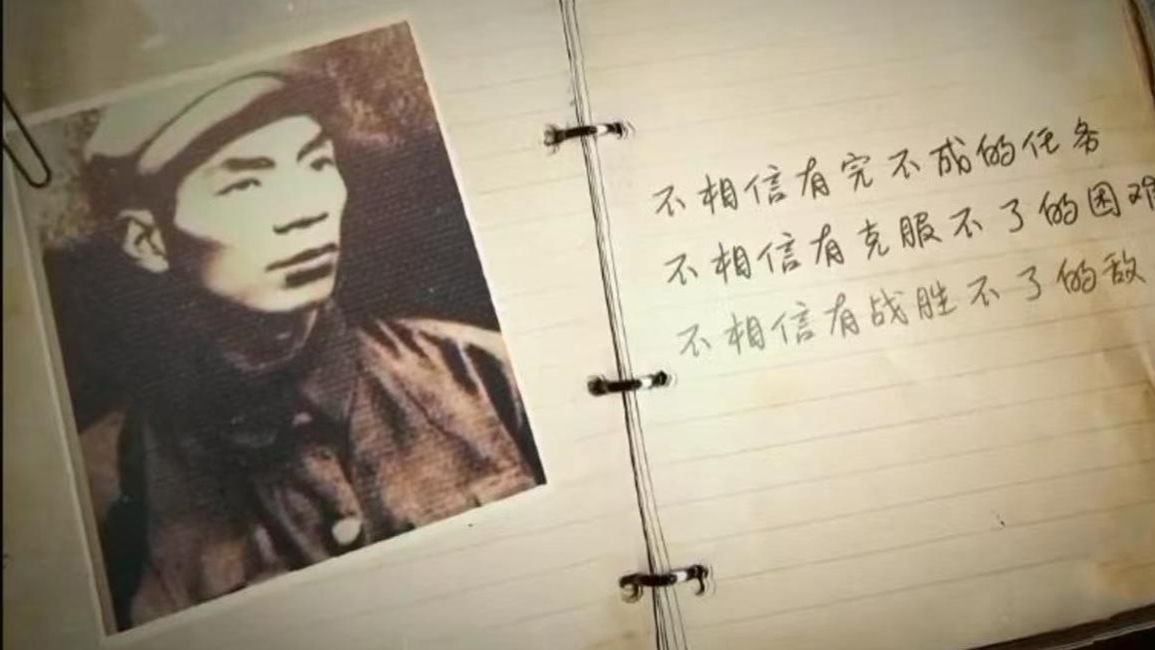 不相信有完不成的任务
不相信有克服不了的困难
不相信有战胜不了的敌